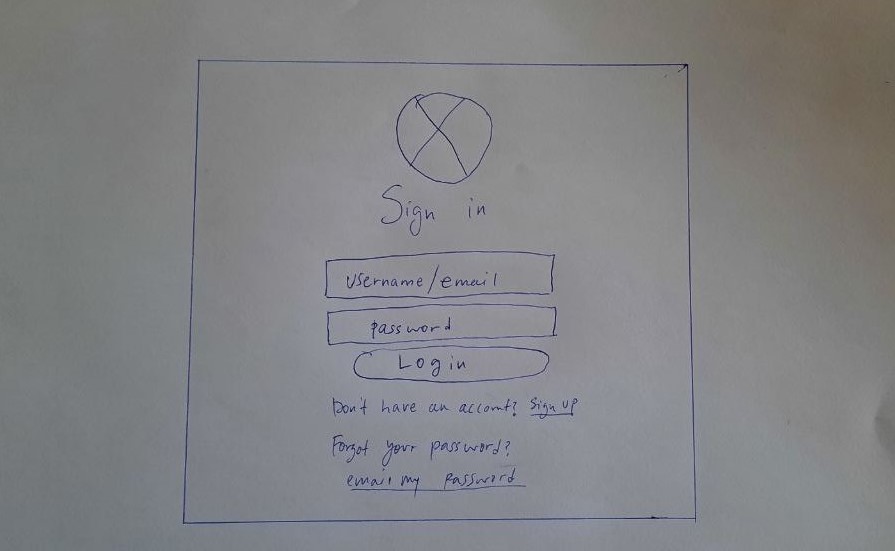 Sign in
username/email
password
Login
Don't have an account? Sign up
Forgot your password?
email my password